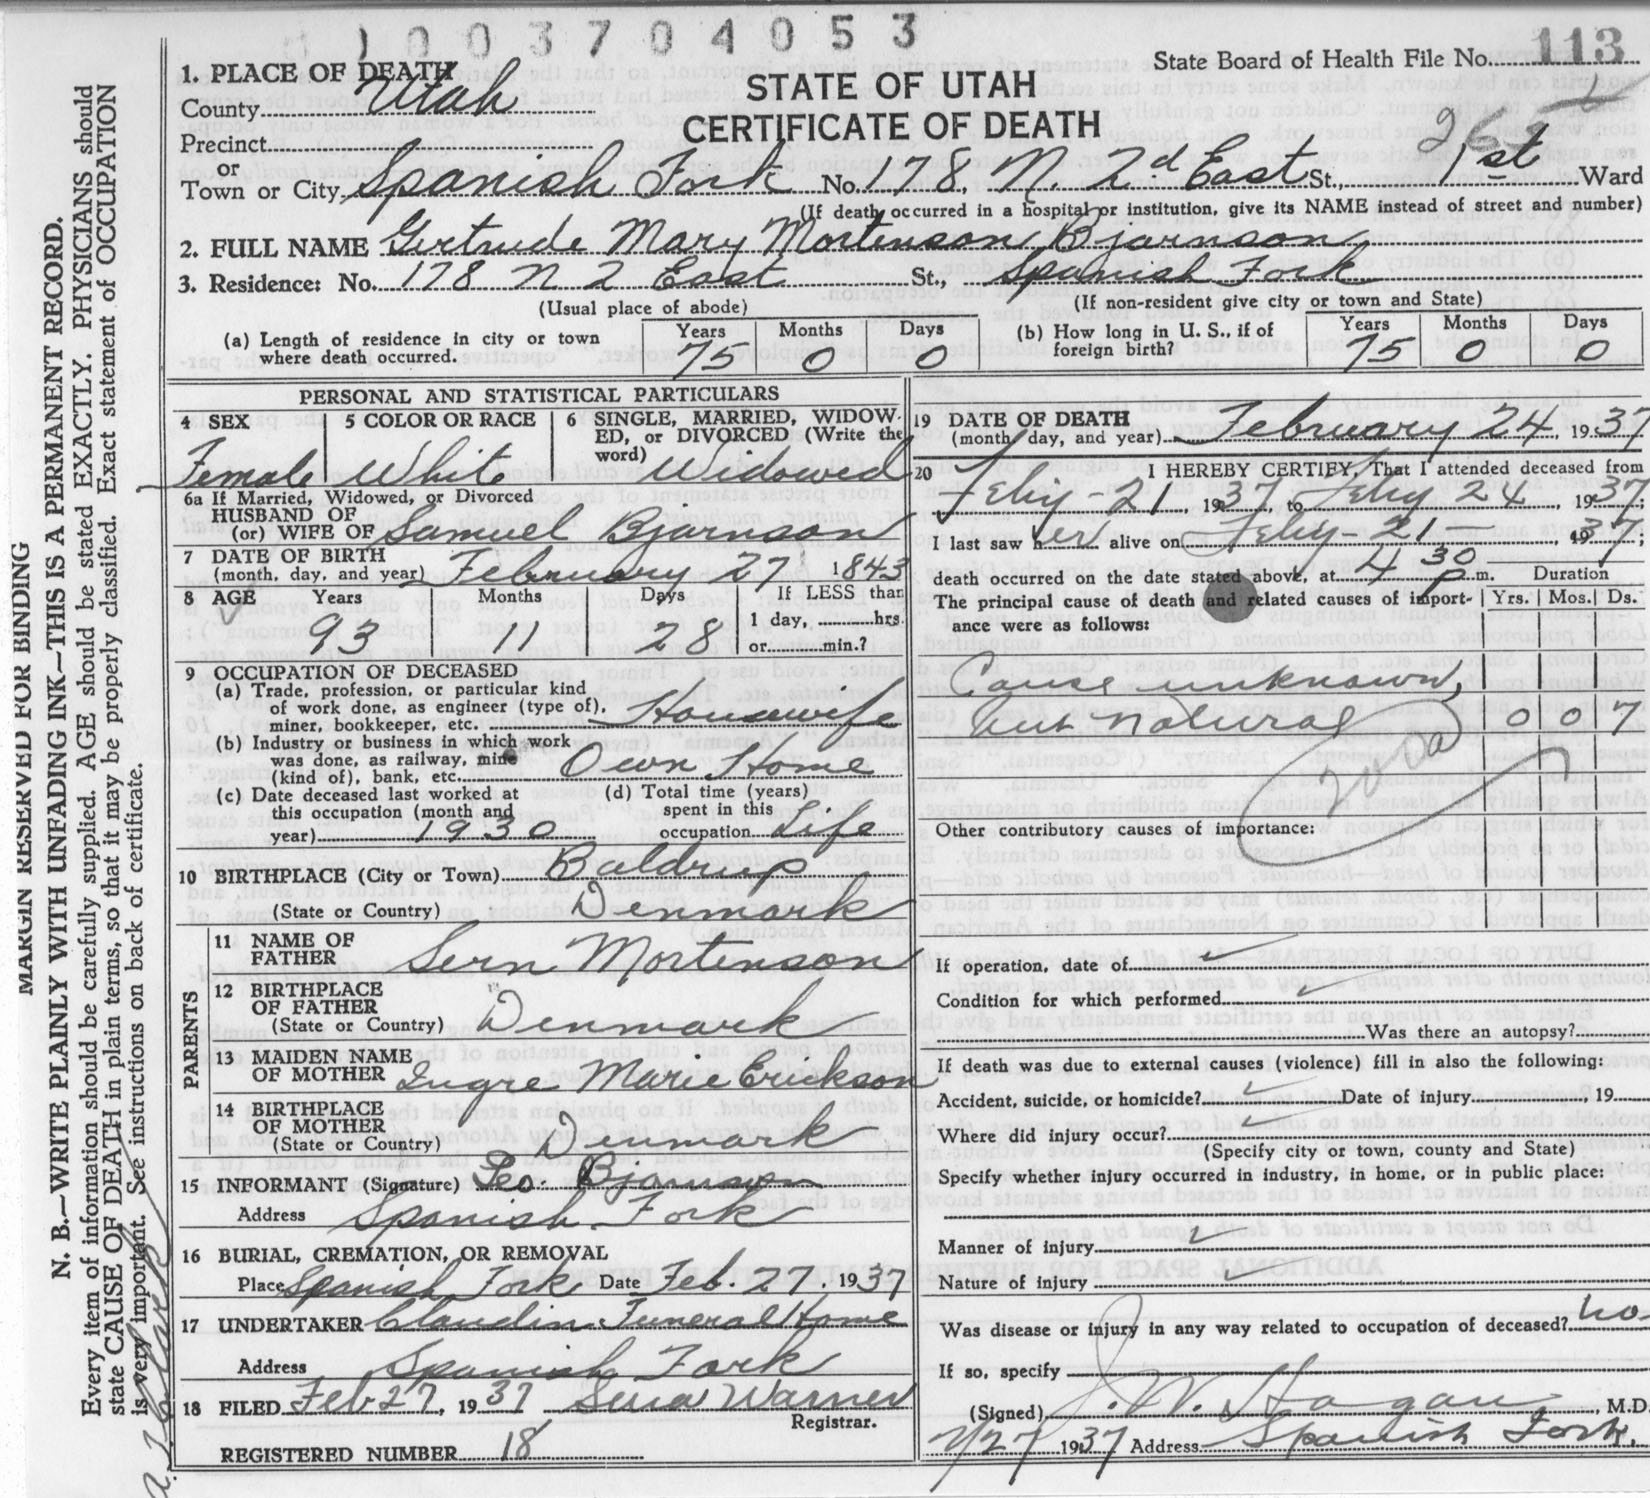 1003704053
State Board of Health File No. 113
1. PLACE OF DEATH
STATE OF UTAH
CERTIFICATE OF DEATH
County Utah
Precinct
or
Town or City Spanish Fork No. 178 N. 2d East St., 1st Ward
(If death occurred in a hospital or institution, give its NAME instead of street and number)
2. FULL NAME Gertrude Mary Mortenson Bjarnson
3. Residence: No. 178 N 2 East St., Spanish Fork
(Usual place of abode) (If non-resident give city or town and State)
(a) Length of residence in city or town where death occurred. Years 75 Months 0 Days 0
(b) How long in U. S., if of foreign birth? Years 75 Months 0 Days 0
PERSONAL AND STATISTICAL PARTICULARS
4 SEX Female
5 COLOR OR RACE White
6 SINGLE, MARRIED, WIDOWED, or DIVORCED (Write the word) Widowed
6a If Married, Widowed, or Divorced
HUSBAND OF
(or) WIFE OF Samuel Bjarnson
7 DATE OF BIRTH
(month, day, and year) February 27 1843
8 AGE Years Months Days If LESS than
93 11 28 1 day, hrs.
or min.?
9 OCCUPATION OF DECEASED
(a) Trade, profession, or particular kind
of work done, as engineer (type of),
miner, bookkeeper, etc. Housewife
(b) Industry or business in which work
was done, as railway, mine
(kind of), bank, etc. Own Home
(c) Date deceased last worked at
this occupation (month and
year) 1930
(d) Total time (years)
spent in this
occupation Life
10 BIRTHPLACE (City or Town) Baldrup
(State or Country) Denmark
PARENTS
11 NAME OF
FATHER Sern Mortenson
12 BIRTHPLACE
OF FATHER
(State or Country) Denmark
13 MAIDEN NAME
OF MOTHER Ingre Marie Erickson
14 BIRTHPLACE
OF MOTHER
(State or Country) Denmark
15 INFORMANT (Signature) Geo. Bjarnson
Address Spanish Fork
16 BURIAL, CREMATION, OR REMOVAL
Place Spanish Fork Date Feb. 27. 1937
17 UNDERTAKER Claudin Funeral Home
Address Spanish Fork
18 FILED Feb 27, 1937 Sena Warner
Registrar.
REGISTERED NUMBER 18
19 DATE OF DEATH
(month, day, and year) February 24, 1937
20 I HEREBY CERTIFY, That I attended deceased from
Feby-21, 1937, to Feby 24, 1937,
I last saw her alive on Feby-21 1937;
death occurred on the date stated above, at 4 30 p m. Duration
The principal cause of death and related causes of importance were as follows: Yrs. Mos. Ds.
Cause unknown,
but natural 0 0 7
200a
Other contributory causes of importance:
If operation, date of
Condition for which performed
Was there an autopsy?
If death was due to external causes (violence) fill in also the following:
Accident, suicide, or homicide? Date of injury 19
Where did injury occur?
(Specify city or town, county and State)
Specify whether injury occurred in industry, in home, or in public place:
Manner of injury
Nature of injury
Was disease or injury in any way related to occupation of deceased? no
If so, specify
(Signed) J. W. Hagan, M.D.
2/27 1937 Address Spanish Fork.
MARGIN RESERVED FOR BINDING
N. B.—WRITE PLAINLY WITH UNFADING INK—THIS IS A PERMANENT RECORD.
Every item of information should be carefully supplied. AGE should be stated EXACTLY. PHYSICIANS should
state CAUSE OF DEATH in plain terms, so that it may be properly classified. Exact statement of OCCUPATION
is very important. See instructions on back of certificate.